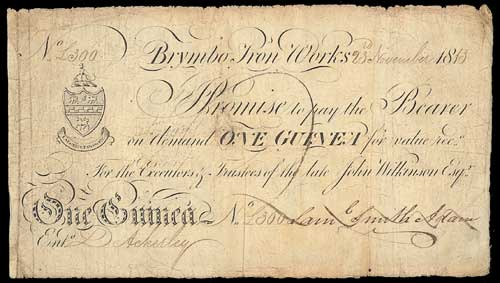 No. £300 Brymbo Iron Works 23d November 1813
I Promise to pay the Bearer
on demand ONE GUINEA for value recd.
For the Executors & Trustees of the late John Wilkinson Esqr.
One Guinea No. £300 Saml. Smith Adam
Entd. D Ackerley